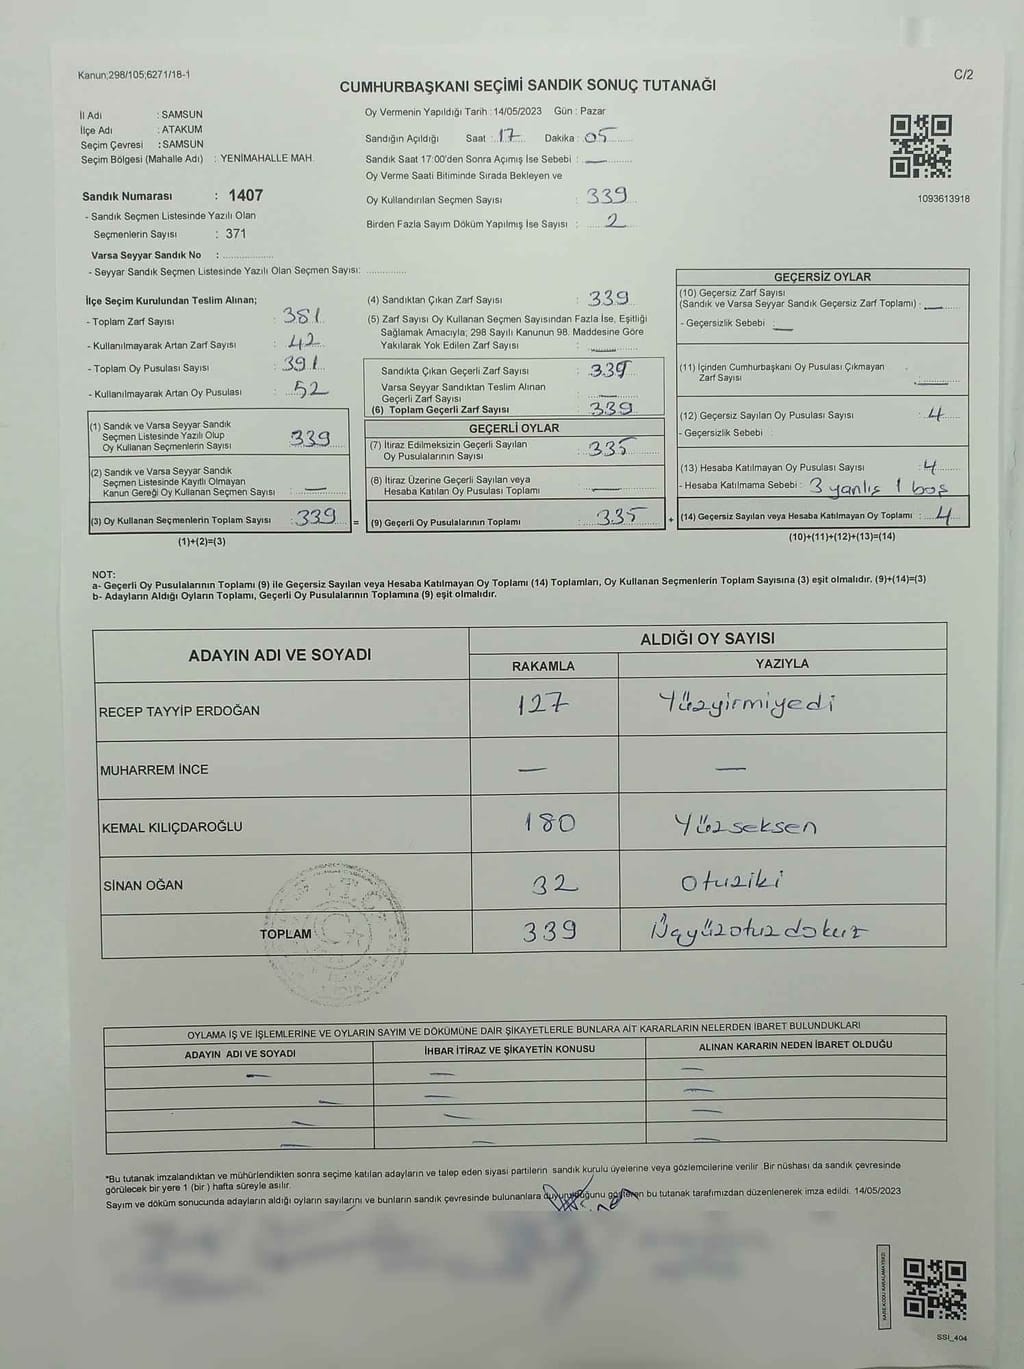 Kanun;298/105;6271/18-1
C/2
CUMHURBAŞKANI SEÇİMİ SANDIK SONUÇ TUTANAĞI
İl Adı : SAMSUN
İlçe Adı : ATAKUM
Seçim Çevresi : SAMSUN
Seçim Bölgesi (Mahalle Adı) : YENİMAHALLE MAH.
Oy Vermenin Yapıldığı Tarih : 14/05/2023 Gün : Pazar
Sandığın Açıldığı Saat : 17 Dakika : 05
Sandık Saat 17:00'den Sonra Açımış İse Sebebi : —
Oy Verme Saati Bitiminde Sırada Bekleyen ve
Oy Kullandırılan Seçmen Sayısı : 339
Birden Fazla Sayım Döküm Yapılmış İse Sayısı : 2
1093613918
Sandık Numarası : 1407
- Sandık Seçmen Listesinde Yazılı Olan
Seçmenlerin Sayısı : 371
Varsa Seyyar Sandık No :
- Seyyar Sandık Seçmen Listesinde Yazılı Olan Seçmen Sayısı:
İlçe Seçim Kurulundan Teslim Alınan;
- Toplam Zarf Sayısı : 381
- Kullanılmayarak Artan Zarf Sayısı : 42
- Toplam Oy Pusulası Sayısı : 391
- Kullanılmayarak Artan Oy Pusulası : 52
(1) Sandık ve Varsa Seyyar Sandık
Seçmen Listesinde Yazılı Olup
Oy Kullanan Seçmenlerin Sayısı 339
(2) Sandık ve Varsa Seyyar Sandık
Seçmen Listesinde Kayıtlı Olmayan
Kanun Gereği Oy Kullanan Seçmen Sayısı : —
(3) Oy Kullanan Seçmenlerin Toplam Sayısı : 339 =
(1)+(2)=(3)
(4) Sandıktan Çıkan Zarf Sayısı : 339
(5) Zarf Sayısı Oy Kullanan Seçmen Sayısından Fazla İse, Eşitliği
Sağlamak Amacıyla; 298 Sayılı Kanunun 98. Maddesine Göre
Yakılarak Yok Edilen Zarf Sayısı : —
Sandıkta Çıkan Geçerli Zarf Sayısı : 339
Varsa Seyyar Sandıktan Teslim Alınan
Geçerli Zarf Sayısı : —
(6) Toplam Geçerli Zarf Sayısı : 339
GEÇERLİ OYLAR
(7) İtiraz Edilmeksizin Geçerli Sayılan
Oy Pusulalarının Sayısı : 335
(8) İtiraz Üzerine Geçerli Sayılan veya
Hesaba Katılan Oy Pusulası Toplamı : —
(9) Geçerli Oy Pusulalarının Toplamı : 335 +
GEÇERSİZ OYLAR
(10) Geçersiz Zarf Sayısı
(Sandık ve Varsa Seyyar Sandık Geçersiz Zarf Toplamı) : —
- Geçersizlik Sebebi : —
(11) İçinden Cumhurbaşkanı Oy Pusulası Çıkmayan
Zarf Sayısı : —
(12) Geçersiz Sayılan Oy Pusulası Sayısı : 4
- Geçersizlik Sebebi :
(13) Hesaba Katılmayan Oy Pusulası Sayısı : 4
- Hesaba Katılmama Sebebi : 3 yanlış 1 boş
(14) Geçersiz Sayılan veya Hesaba Katılmayan Oy Toplamı : 4
(10)+(11)+(12)+(13)=(14)
NOT:
a- Geçerli Oy Pusulalarının Toplamı (9) ile Geçersiz Sayılan veya Hesaba Katılmayan Oy Toplamı (14) Toplamları, Oy Kullanan Seçmenlerin Toplam Sayısına (3) eşit olmalıdır. (9)+(14)=(3)
b- Adayların Aldığı Oyların Toplamı, Geçerli Oy Pusulalarının Toplamına (9) eşit olmalıdır.
ADAYIN ADI VE SOYADI
ALDIĞI OY SAYISI
RAKAMLA YAZIYLA
RECEP TAYYİP ERDOĞAN 127 Yüzyirmiyedi
MUHARREM İNCE — —
KEMAL KILIÇDAROĞLU 180 Yüzseksen
SİNAN OĞAN 32 Otuziki
TOPLAM 339 Üçyüzotuzdokuz
OYLAMA İŞ VE İŞLEMLERİNE VE OYLARIN SAYIM VE DÖKÜMÜNE DAİR ŞİKAYETLERLE BUNLARA AİT KARARLARIN NELERDEN İBARET BULUNDUKLARI
ADAYIN ADI VE SOYADI İHBAR İTİRAZ VE ŞİKAYETİN KONUSU ALINAN KARARIN NEDEN İBARET OLDUĞU
— — —
— — —
— — —
— — —
*Bu tutanak imzalandıktan ve mühürlendikten sonra seçime katılan adayların ve talep eden siyasi partilerin sandık kurulu üyelerine veya gözlemcilerine verilir. Bir nüshası da sandık çevresinde
görülecek bir yere 1 (bir ) hafta süreyle asılır.
Sayım ve döküm sonucunda adayların aldığı oyların sayılarını ve bunların sandık çevresinde bulunanlara duyurulduğunu gösteren bu tutanak tarafımızdan düzenlenerek imza edildi. 14/05/2023
KAREKODU KARALAMAYINIZ!
SSI_404